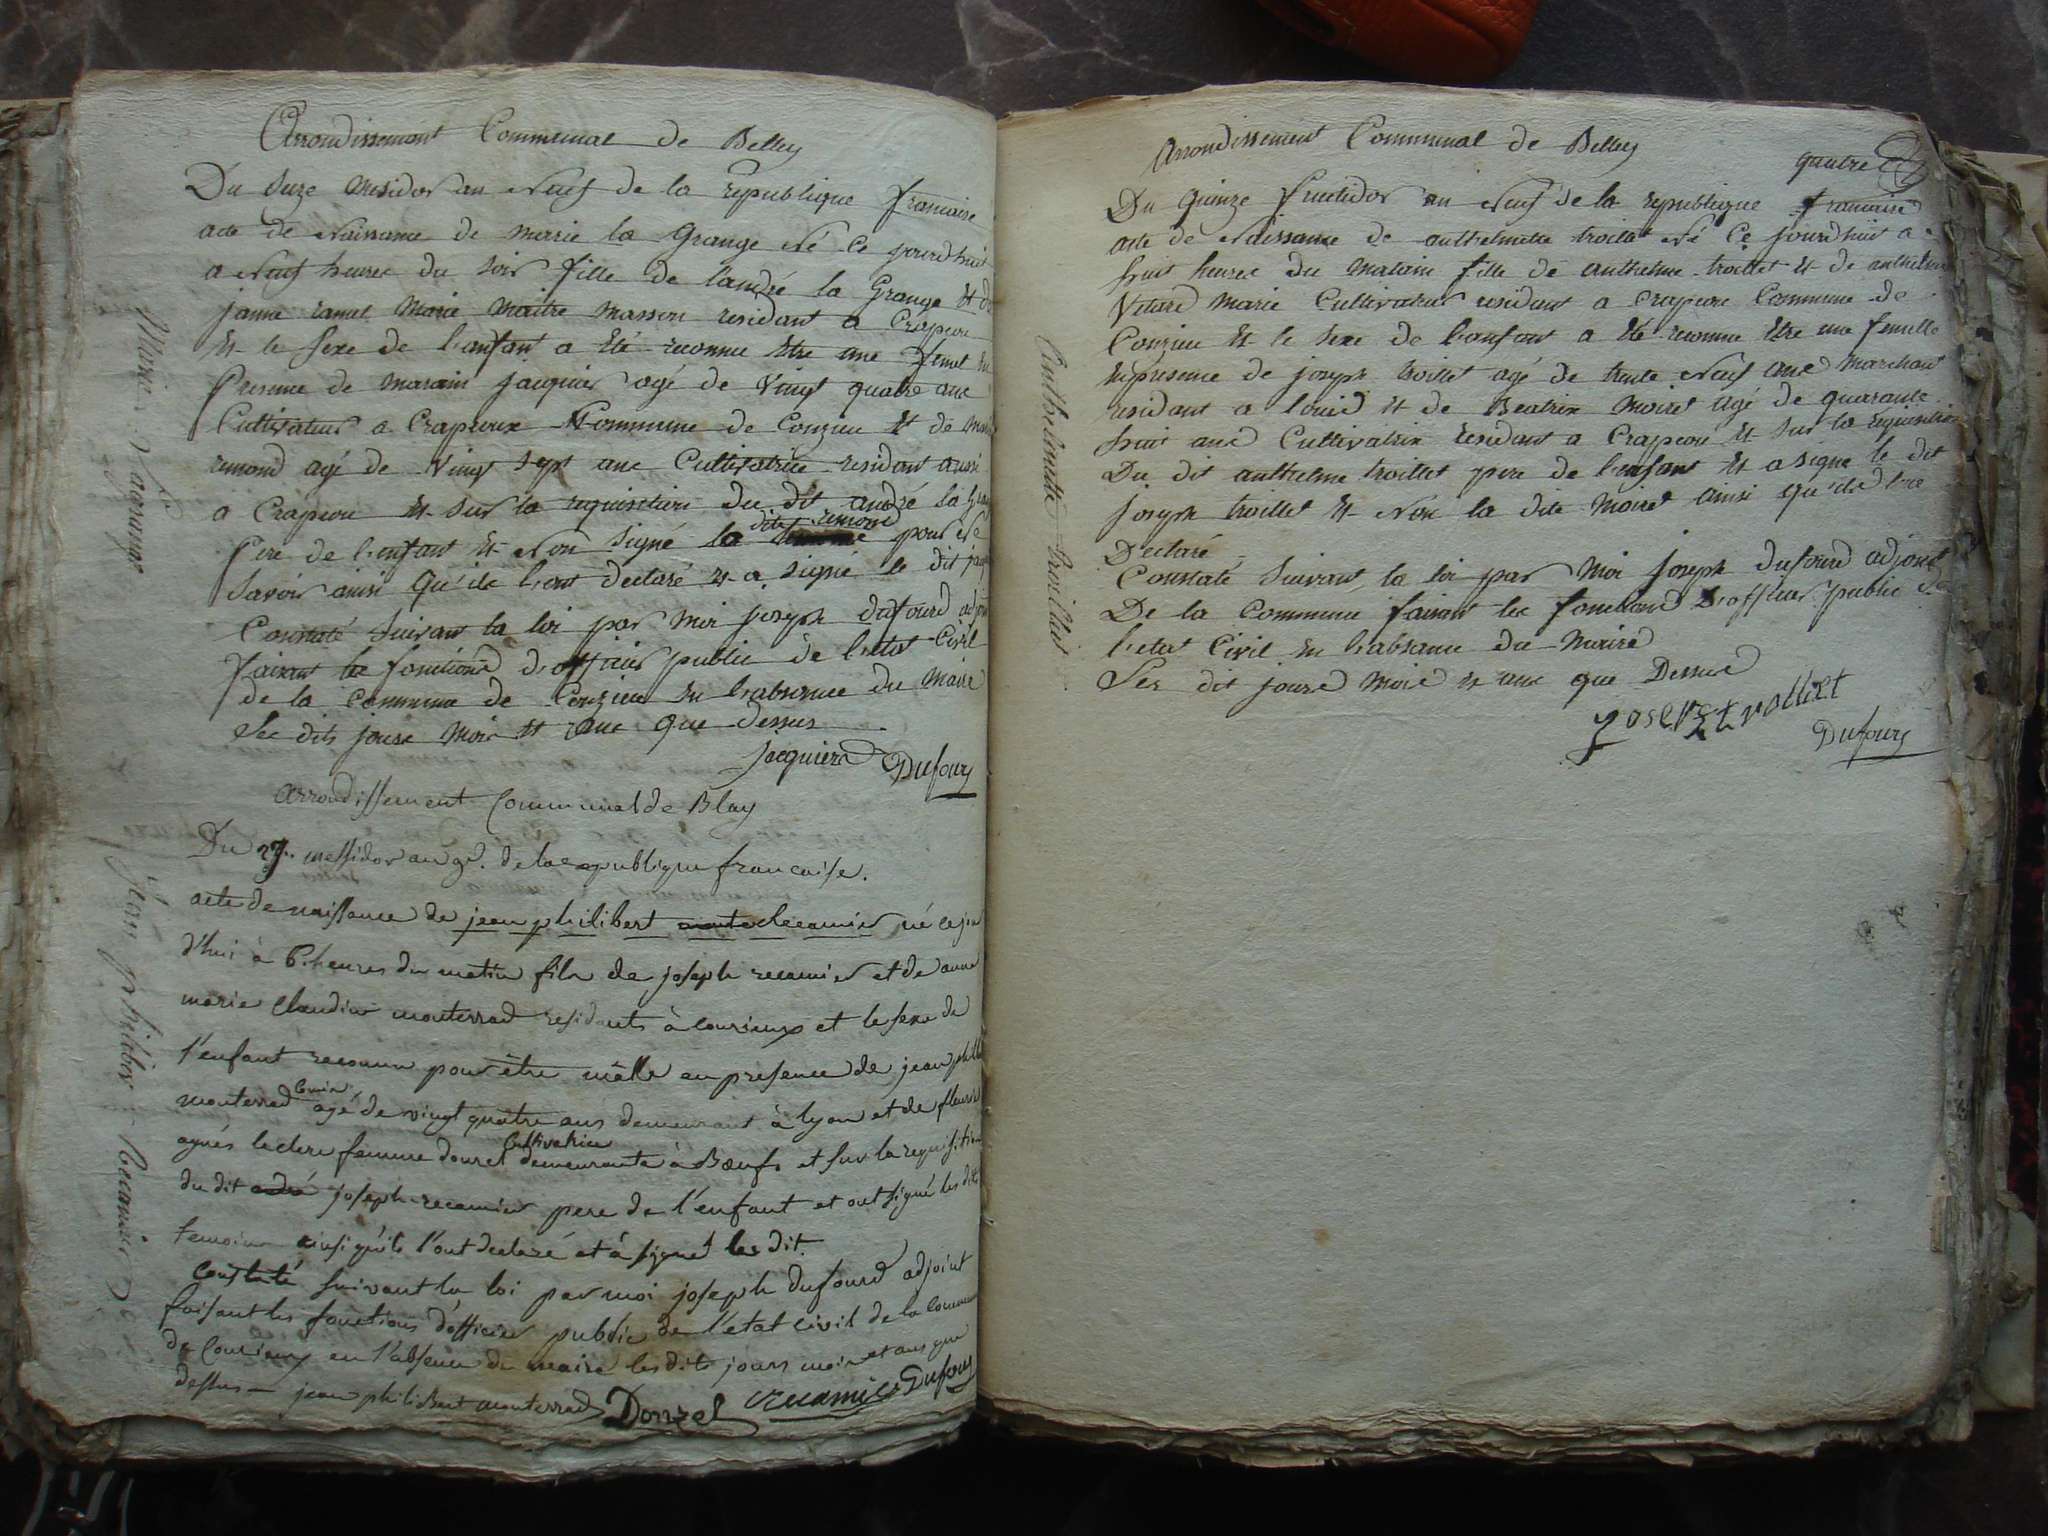 Arrondissement Communal de Belley
Du seize mesidor an neuf de la republique francaise
acte de Naissance de marie la Grange né ce jourdhuit
a neuf heures du soir fille de landré la Grange et de
janne ramel Marie Maitre Masson residant a Crapeou
et le sexe de lenfant a été reconnu etre une femel en
Presence de marain jacquier agé de Vingt quatre ans
Cultivateur a Crapeoux Commune de Conzieu et de
remond agé de Vingt sept ans Cultivatrice residant aussi
a Crapeou et sur la requisition du dit andré la
Pere de lenfant et Non signé la dite remond pour Ne
Savoir ainsi qu'ils lont declaré et a signé le dit
Constaté suivant la loi par moi joseph dufourd
faisant les fonctions doffisier public de letat Civil
de la Commune de Conzieu en labsence du maire
Les dits jours mois et ans que dessus
jacquier Dufour
Marie Lagrange
arrondissement Communal de Blay
Du 27. messidor an 9e. de la republique francaise.
acte de naissance de jean philibert recamier né ce
d'hui à 6. heures du matin fils de joseph recamier et de anne
marie Claudine monterrad residents à Conzieux et le sexe de
l'enfant reconnu pour être mâlle en presence de jean
monterrad agé de vingt quatre ans demeurant à lyon et de fleurie
agnés leclerc femme donzel Cultivatrice demeurante à Bœufs et sur la requisition
du dit andré joseph recamier pere de l'enfant et ont signé les dits
temoins ainsi qu'ils l'ont declaré et à signé les dit.
Constaté suivant la loi par moi joseph dufourd adjoint
faisant les fonctions d'officier public de l'etat civil de la commune
de Conzieux en l'absence du maire les dits jours mois et ans que
dessus — jean philibert monterrad Donzel recamier Dufour
jean philibert Recamier
Arrondissement Communal de Belley
quatre
Du Quinze fructidor an neuf de la republique francaise
acte de Naissance de anthelmette troillet né ce jourdhuit a
huit heures du matain fille de anthelme troillet et de anthelmette
Vetard marie Cultivateur residant a Crapeou Commune de
Conzieu et le sexe de lenfant a été reconnu etre une femelle
en presence de joseph troillet agé de trente neuf ans Marchant
residant a et de Beatrix Moiret agé de quarante
huit ans Cultivatrix residant a Crapeou et sur la requisition
Du dit anthelme troillet pere de lenfant et a signé le dit
joseph troillet et Non la dite Moiret ainsi qu'ils lont
Declaré
Constaté suivant la loi par Moi joseph dufourd adjoint
De la Commune faisant les fonctions d'officier public de
letat Civil en labsance du Maire
Les dit jours Mois et ans que Dessus
joseph trolliet
Dufour
Anthelmette troillet